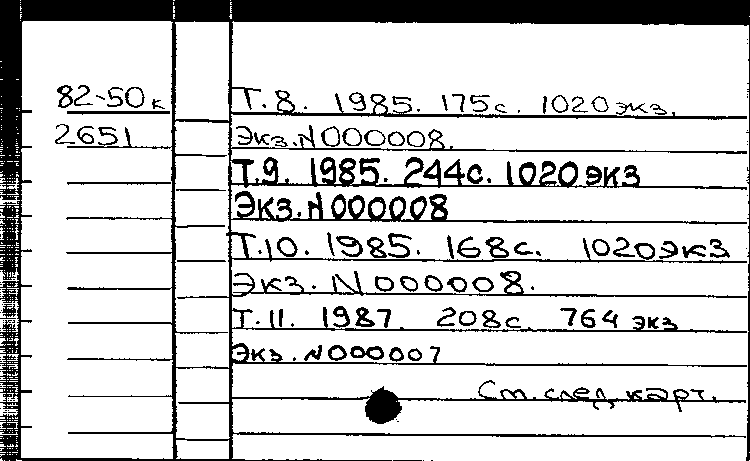 82-50к
2651
Т.8. 1985. 175с. 1020экз.
Экз.N000008.
Т.9. 1985. 244с. 1020экз
Экз.N000008
Т.10. 1985. 168с. 1020экз
Экз. N000008.
Т.11. 1987. 208с. 764 экз
Экз. N000007
См. след. карт.